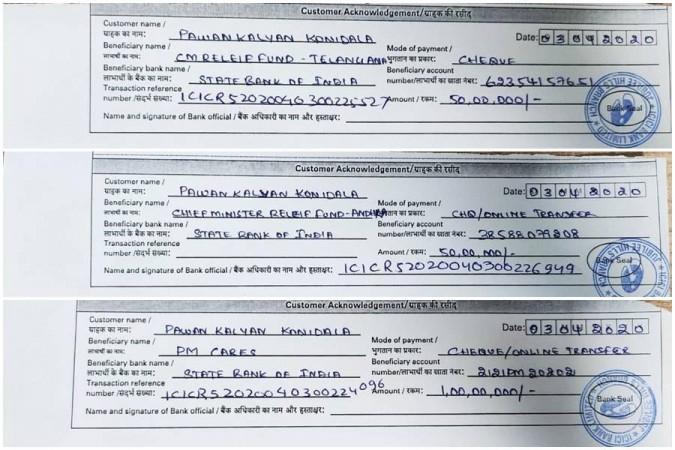 Customer Acknowledgement/ग्राहक की रसीद
Customer name /
ग्राहक का नाम: PAWAN KALYAN KONIDALA Date: 03042020
Beneficiary name /
लाभार्थी का नाम: CM RELEIF FUND - TELANGANA
Mode of payment /
भुगतान का प्रकार: CHEQUE
Beneficiary bank name /
लाभार्थी के बैंक का नाम: STATE BANK OF INDIA
Beneficiary account
number/लाभार्थी का खाता नंबर: 62354157651
Transaction reference
number /संदर्भ संख्या: ICICR52020040300225527 Amount / रकम: 50,00,000/-
Name and signature of Bank official / बैंक अधिकारी का नाम और हस्ताक्षर:
Bank Seal
ICICI BANK LIMITED JUBILEE HILLS BRANCH
Customer Acknowledgement/ग्राहक की रसीद
Customer name /
ग्राहक का नाम: PAWAN KALYAN KONIDALA Date: 03042020
Beneficiary name /
लाभार्थी का नाम: CHIEF MINISTER RELEIF FUND-ANDHRA
Mode of payment /
भुगतान का प्रकार: CHQ/ONLINE TRANSFER
Beneficiary bank name /
लाभार्थी के बैंक का नाम: STATE BANK OF INDIA
Beneficiary account
number/लाभार्थी का खाता नंबर: 38588079208
Transaction reference
number /संदर्भ संख्या: Amount / रकम: 50,00,000/-
Name and signature of Bank official / बैंक अधिकारी का नाम और हस्ताक्षर: ICICR52020040300226949
Bank Seal
JUBILEE HILLS BRANCH ICICI BANK
Customer Acknowledgement/ग्राहक की रसीद
Customer name /
ग्राहक का नाम: PAWAN KALYAN KONIDALA Date: 03042020
Beneficiary name /
लाभार्थी का नाम: PM CARES
Mode of payment /
भुगतान का प्रकार: CHEQUE/ONLINE TRANSFER
Beneficiary bank name /
लाभार्थी के बैंक का नाम: STATE BANK OF INDIA
Beneficiary account
number/लाभार्थी का खाता नंबर: 2121PM20202
Transaction reference
number /संदर्भ संख्या: ICICR52020040300224096 Amount / रकम: 1,00,00,000/-
Name and signature of Bank official / बैंक अधिकारी का नाम और हस्ताक्षर:
Bank Seal
ICICI BANK LIMITED